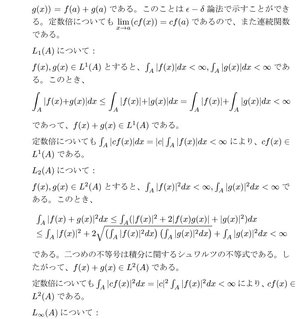 g(x)) = f(a) + g(a) である。このことは ϵ − δ 論法で示すことができ
る。定数倍についても lim_{x→a}(cf(x)) = cf(a) であるので、また連続関数
である。
L₁(A) について：
f(x), g(x) ∈ L¹(A) とすると、∫_A |f(x)|dx < ∞, ∫_A |g(x)|dx < ∞ であ
る。このとき、
∫_A |f(x)+g(x)|dx ≤ ∫_A |f(x)|+|g(x)|dx = ∫_A |f(x)|+∫_A |g(x)|dx < ∞
であって、f(x) + g(x) ∈ L¹(A) である。
定数倍についても ∫_A |cf(x)|dx = |c| ∫_A |f(x)|dx < ∞ により、cf(x) ∈
L¹(A) である。
L₂(A) について：
f(x), g(x) ∈ L²(A) とすると、∫_A |f(x)|²dx < ∞, ∫_A |g(x)|²dx < ∞ で
ある。このとき、
∫_A |f(x) + g(x)|²dx ≤ ∫_A(|f(x)|² + 2|f(x)g(x)| + |g(x)|²)dx
≤ ∫_A |f(x)|² + 2√((∫_A |f(x)|²dx) (∫_A |g(x)|²dx)) + ∫_A |g(x)|²dx < ∞
である。二つめの不等号は積分に関するシュワルツの不等式である。し
たがって、f(x) + g(x) ∈ L²(A) である。
定数倍についても ∫_A |cf(x)|²dx = |c|² ∫_A |f(x)|²dx < ∞ により、cf(x) ∈
L²(A) である。
L∞(A) について：